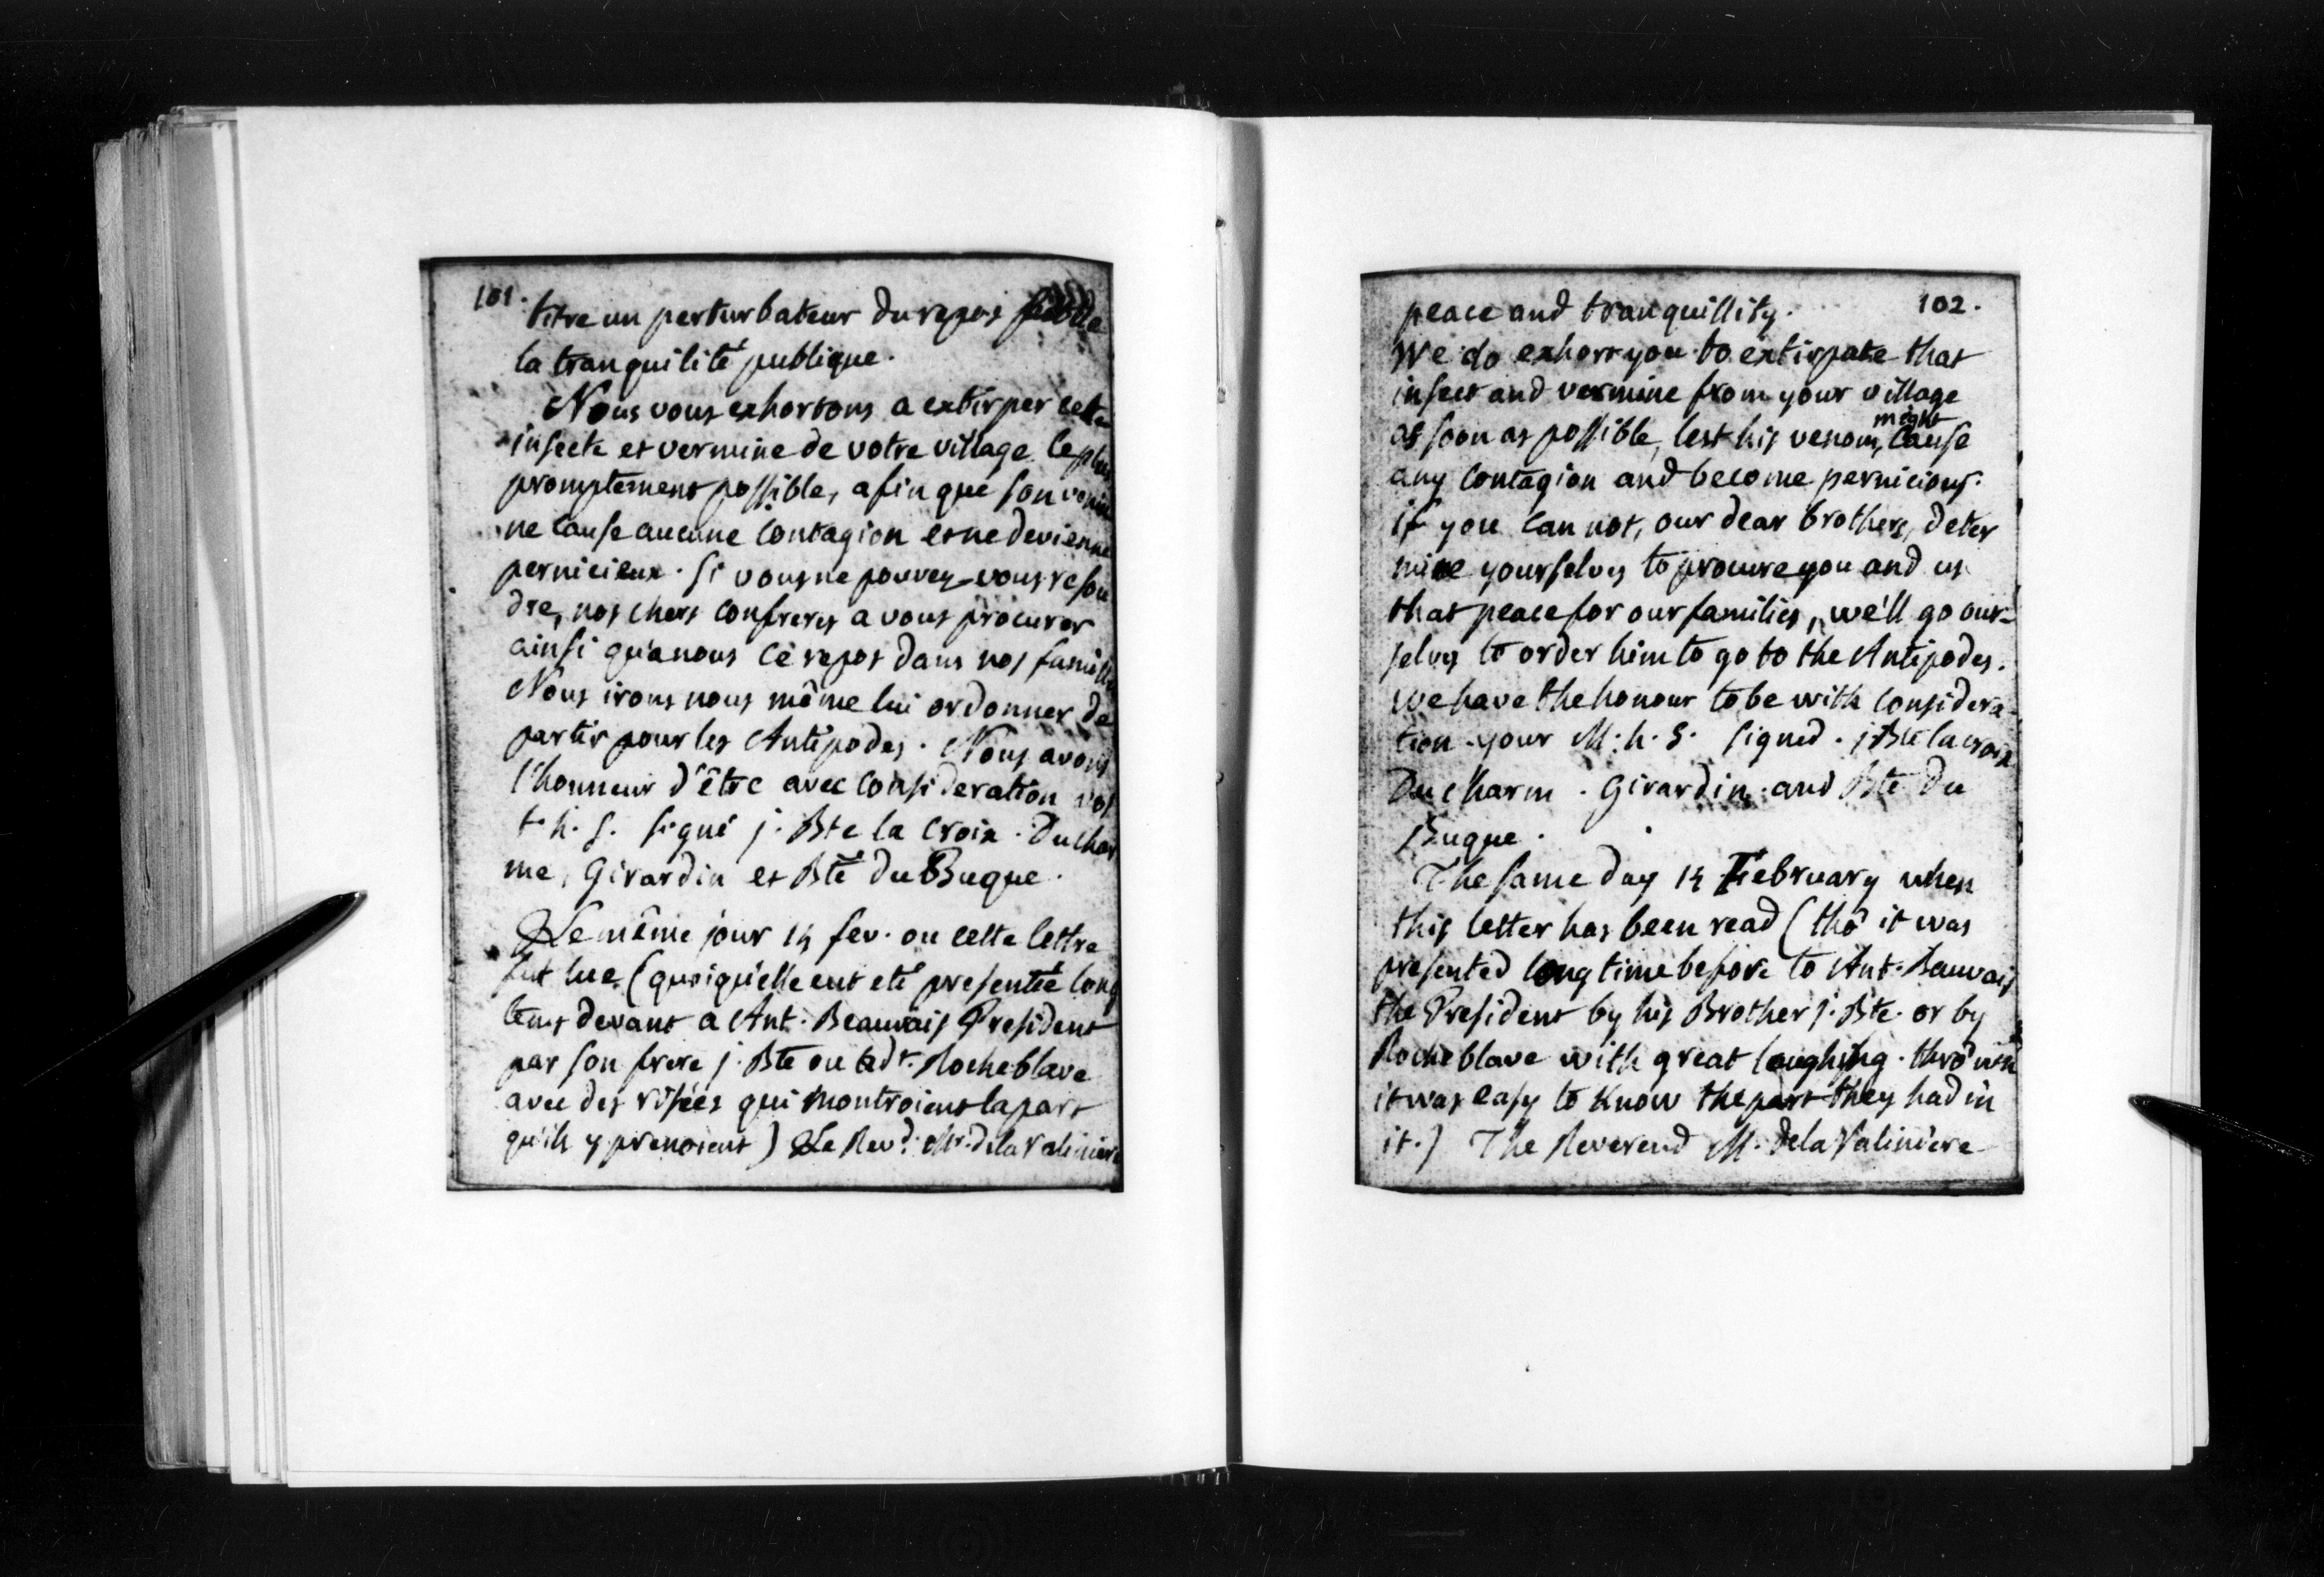 101.
titre un perturbateur du repos de
la tranquilité publique.
Nous vous exhortons a extirper cette
insecte et vermine de votre village le plus
promptement possible, afin que son venin
ne cause aucune contagion et ne devienne
pernicieux. Si vous ne pouvez-vous resou
dre, nos chers confreres a vous procurer
ainsi qu'a nous ce repos dans nos familles
Nous irons nous même lui ordonner de
partir pour les Antipodes. Nous avons
l'honneur d'être avec consideration vos
t. h. s. signé j. Bte la Croix. Duchar
me, Girardin et Bte du Buque.
Le même jour 14 fev. ou cette lettre
fut lue (quoiqu'elle eut eté presentée long
tems devant a Ant. Beauvais President
par son frere j. Bte ou Rocheblave
avec des risées qui montroient la part
qu'ils y prenoient) Le Revd. Mr. de la Valiniere
102.
peace and tranquillity.
We do exhort you to extirpate that
insect and vermine from your village
as soon as possible, lest his venom, might cause
any contagion and become pernicious.
if you can not, our dear brothers, deter
mine yourselves to procure you and us
that peace for our families, we'll go our-
selves to order him to go to the Antipodes.
we have the honour to be with considera-
tion your M. h. S. signed. j Bte la croix
Ducharm. Girardin. and Bte Du
Buque.
The same day 14 February when
this letter has been read (tho' it was
presented long time before to Ant. Beauvais
the President by his Brother j. Bte. or by
Rocheblave with great laughing. thro' wch
it was easy to know the part they had in
it.) The Reverend M. de la Valiniere